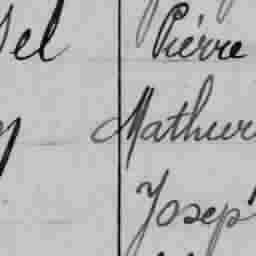 Pierre
Mathur
Josep